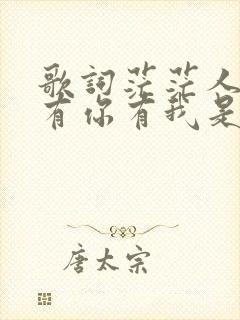 歌詞茫茫人
有你有我是
唐太宗